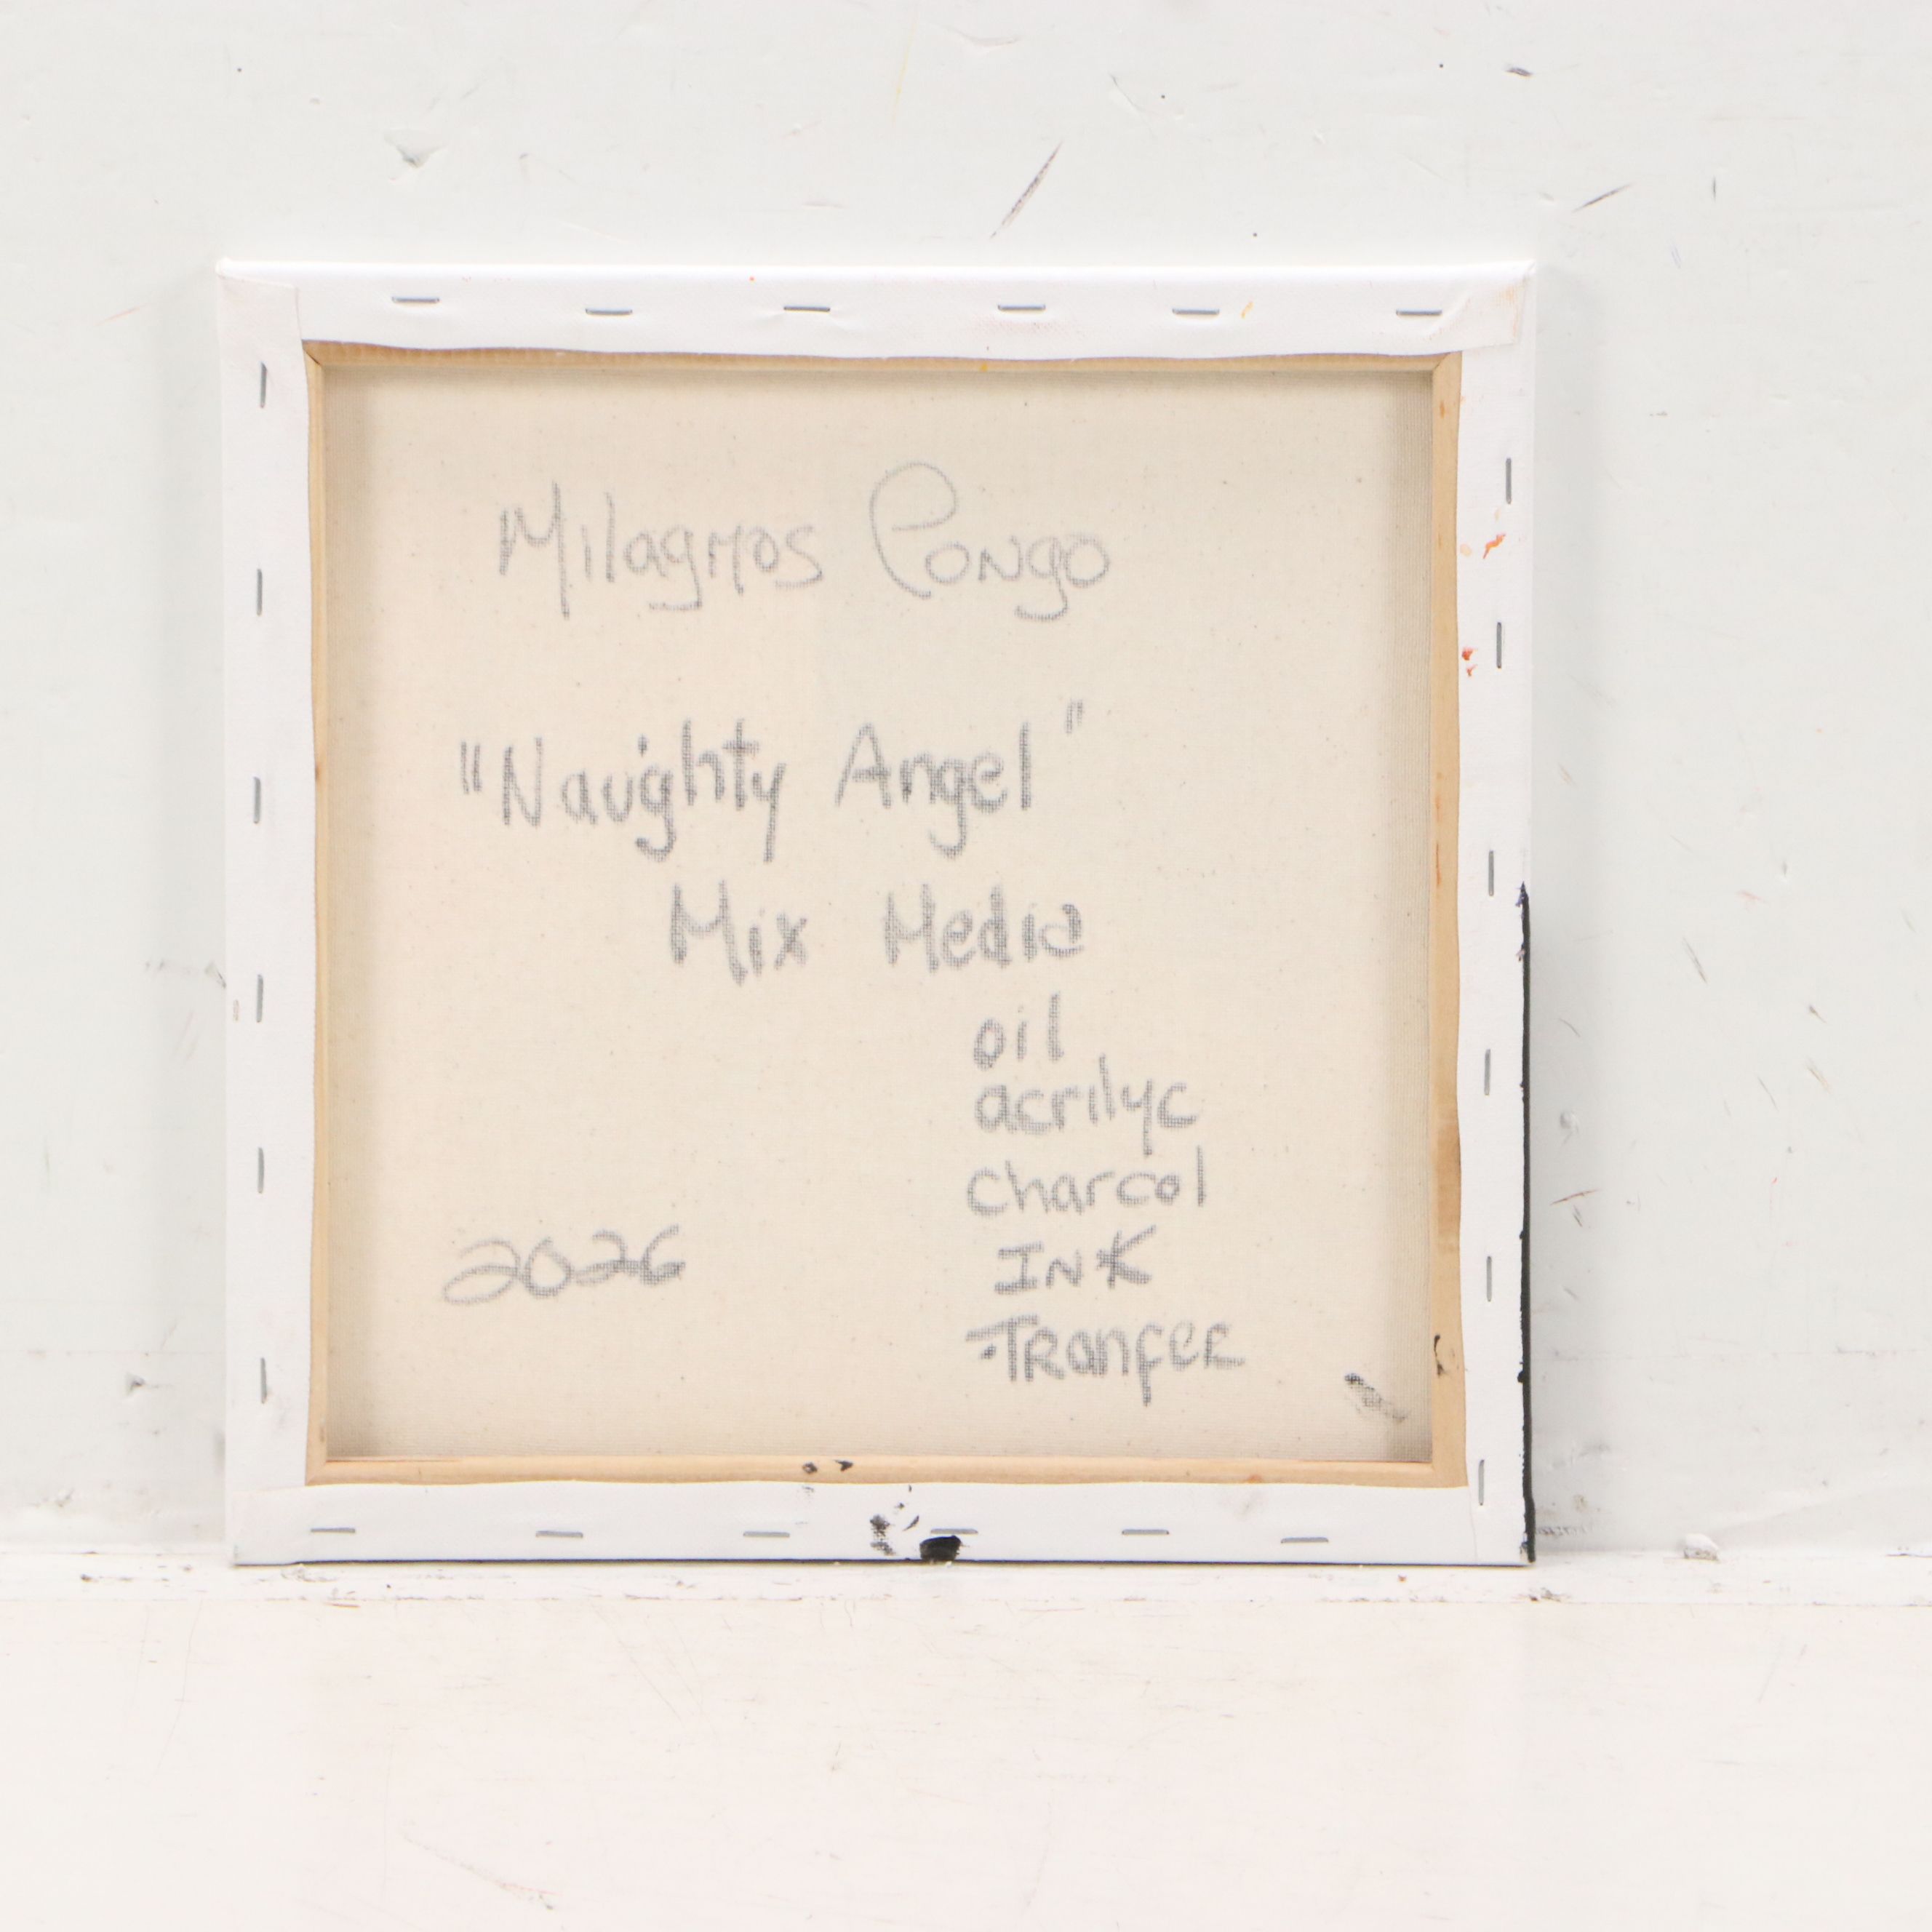 Milagros Pongo
"Naughty Angel"
Mix Media
oil
acrilyc
charcol
INK
TRANFER
2026